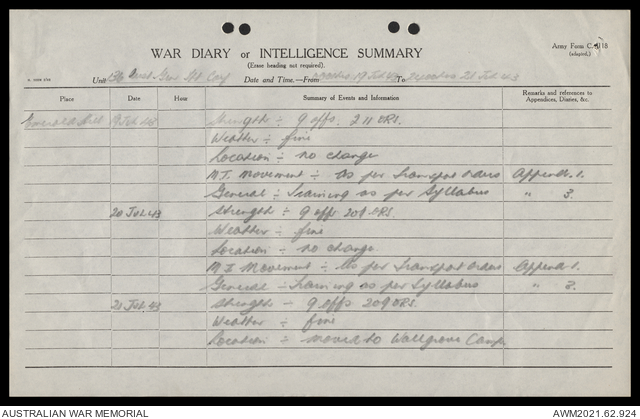 WAR DIARY or INTELLIGENCE SUMMARY
(Erase heading not required).
Army Form C.2118
(adapted.)
Unit Date and Time.—From 19 Jul 43 To 21 Jul 43
Place Date Hour Summary of Events and Information Remarks and references to Appendices, Diaries, &c.
19 Jul 43 Strength ÷ 9 offs. 211 ORS.
Weather ÷ fine
Location ÷ no change
M.T. Movement ÷ as per Transport orders Append. 1.
General ÷ Training as per Syllabus " 3.
20 Jul 43 Strength ÷ 9 offs 209 ORS.
Weather ÷ fine
Location ÷ no change
M.T. Movement ÷ as per Transport orders Append 1.
General ÷ Training as per Syllabus " 3.
21 Jul 43 Strength — 9 offs 209 ORS.
Weather ÷ fine
Location ÷ moved to Wallgrove Camp
AUSTRALIAN WAR MEMORIAL AWM2021.62.924